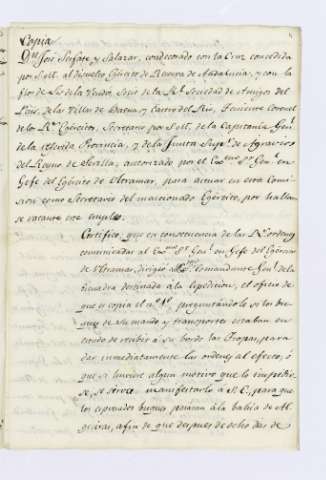 Copia
Dn Josè Serfate y Salazar, condecorado con la Cruz concedida
por S.M. al disuelto Egército de Reserva de Andalucia, y con la
flor de Lis de la Vendé, Socio de la Rl. Sociedad de Amigos del
Pais, de las Villas de Baena y Castro del Rio, Teniente Coronel
de los Rs. Egércitos, Secretario por S.M. de la Capitania Genl.
de la referida Provincia, y de la Junta Supr. de Agravios
del Reyno de Sevilla, autorizado por el Exmo. Sor. Genl. en
Gefe del Egército de Ultramar, para actuar en esta Comi
sion como Secretario del mencionado Egército, por hallar
se vacante este empleo.
Certifico, que en consecuencia de las Rs. ordenes
comunicadas al Exmo. Sr. Genl. en Gefe del Egército
de Ultramar, dirigió al Comandante Genl. de la
Escuadra destinada à la espedicion, el oficio de
que es copia el n.º 1º, preguntándole si los bu
ques de su mando y transportes estaban en
estado de recibir à su bordo las Tropas, para
dar inmediatamente las ordenes al efecto, ó
que si tuviere algun motivo que lo impidie
se, se sirva manifestarlo à S.E., para que
los espresados buques pasáran à la bahia de Al
geciras, afin de que despues de ocho dias de